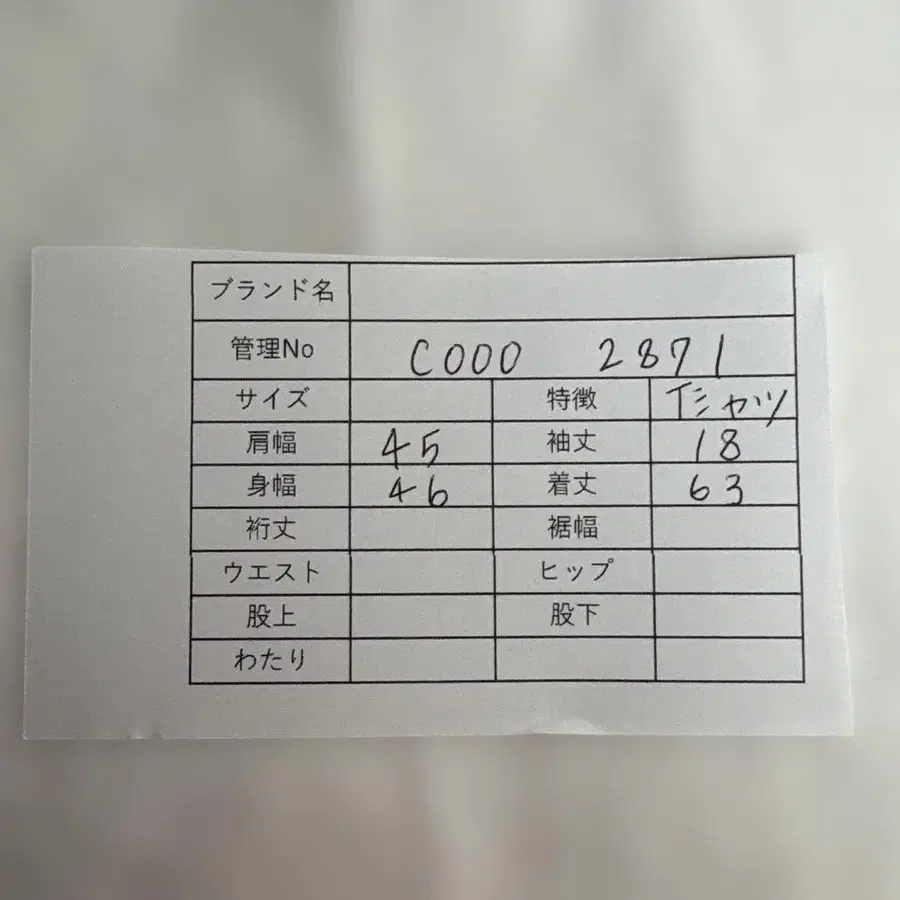 ブランド名
管理No C000 2871
サイズ 特徴 Tシャツ
肩幅 45 袖丈 18
身幅 46 着丈 63
裄丈 裾幅
ウエスト ヒップ
股上 股下
わたり